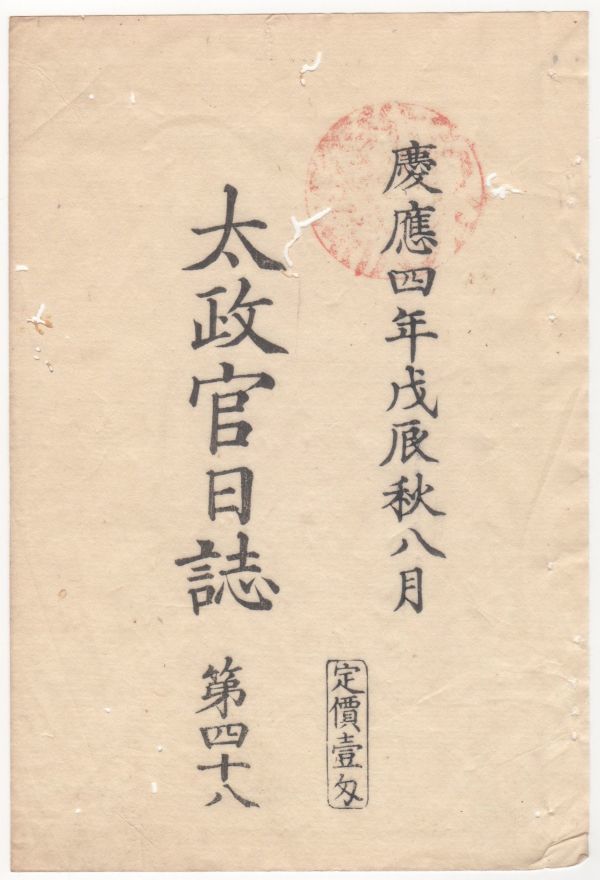 慶應四年戊辰秋八月
定價壹匁
太政官日誌
第四十八